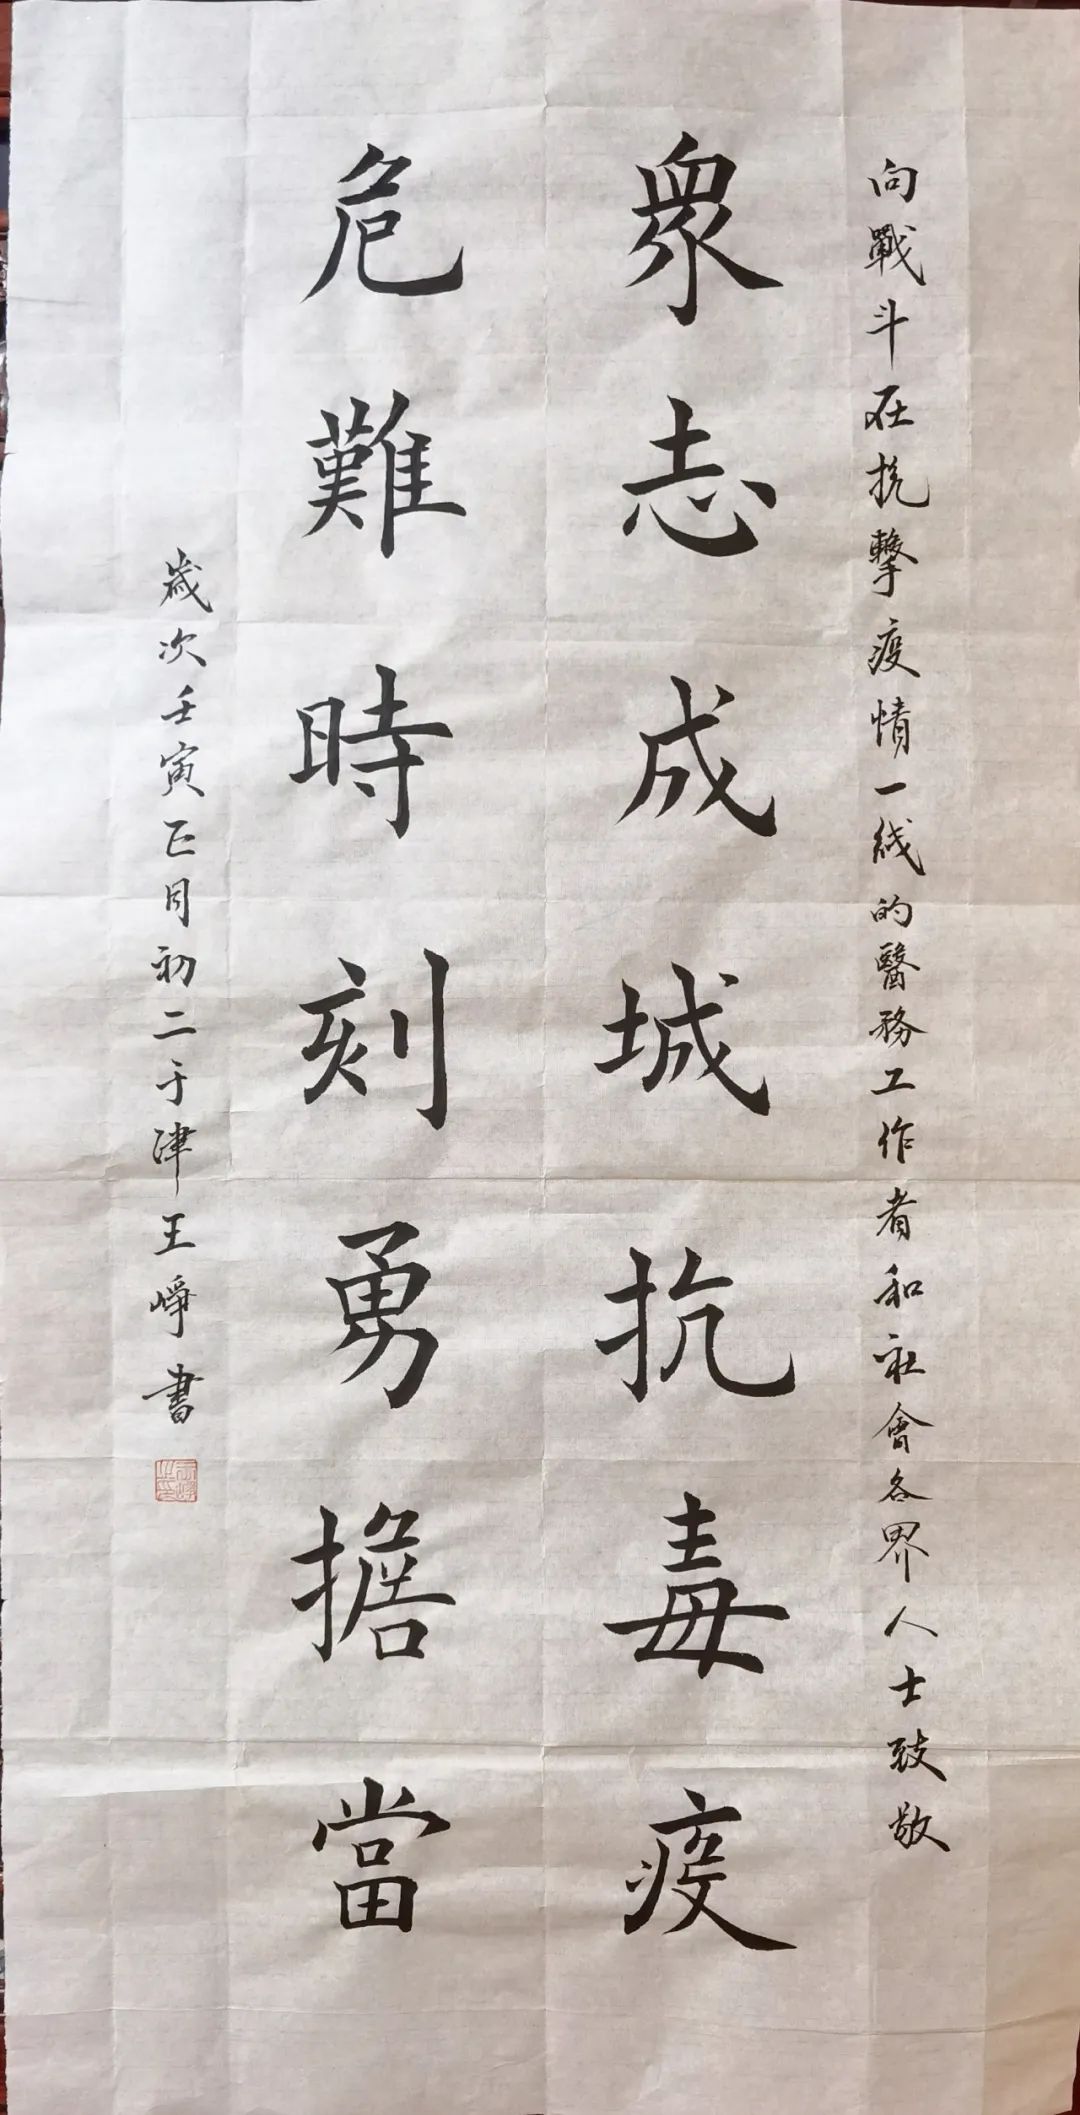 向戰斗在抗擊疫情一线的醫務工作者和社會各界人士致敬
衆志成城抗毒疫
危難時刻勇擔當
歲次壬寅正月初二于津王崢書